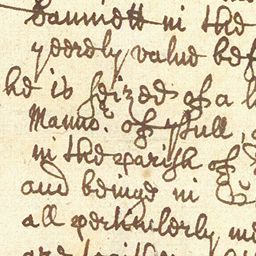 in the
yeerely value bef
he is seized of a
Mannor of
in the parish of
and beinge in
all perticulerly me